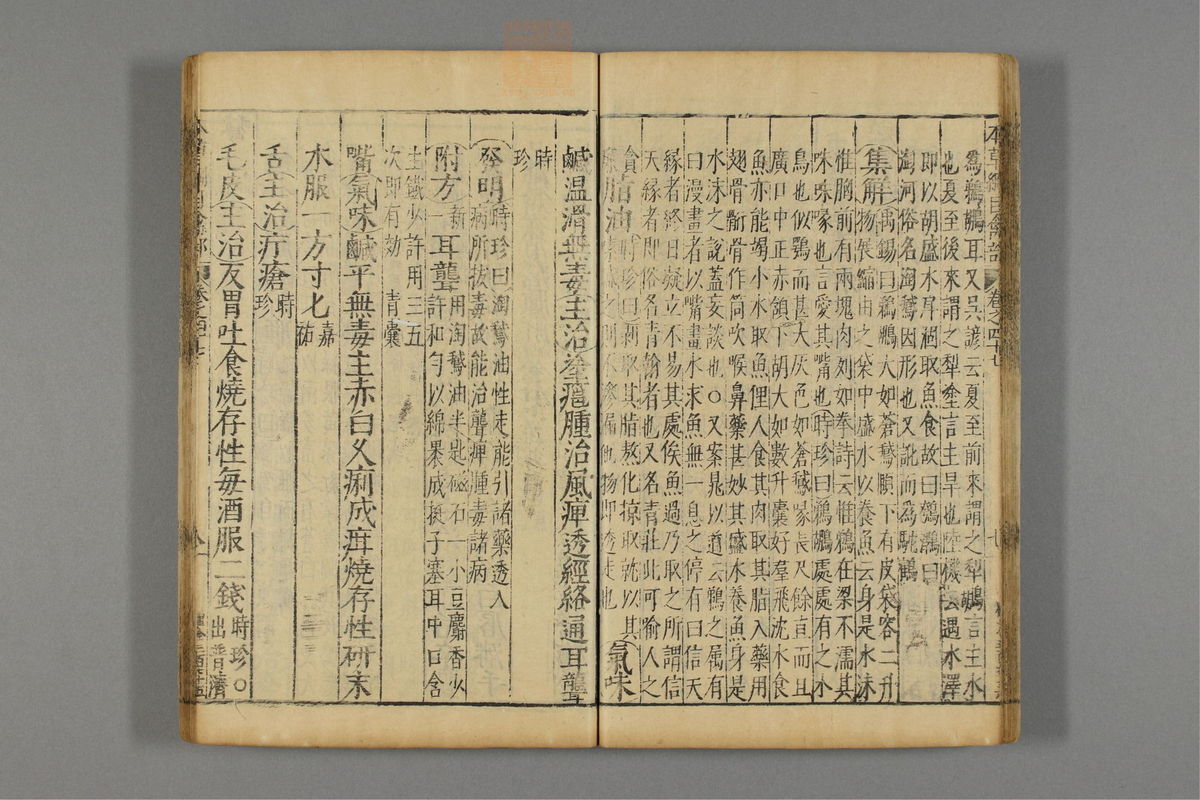 爲鵜鶘耳又吳諺云夏至前來謂之犁鵜言主水
也夏至後來謂之犁塗言主旱也陸機云遇水澤
即以胡盧水戽涸取魚食故曰鴮鸅曰
淘河俗名淘鵝因形也又訛而爲駝鶴
集解
禹錫曰鵜鶘大如蒼鵝頤下有皮袋容二升
物展縮由之袋中盛水以養魚云身是水沫
惟胸前有兩塊肉列如拳詩云惟鵜在梁不濡其
咮咮喙也言愛其嘴也時珍曰鵜鶘處處有之水
鳥也似鶚而甚大灰色如蒼鵝喙長尺餘直而且
廣口中正赤頷下胡大如數升囊好羣飛沈水食
魚亦能竭小水取魚俚人食其肉取其脂入藥用
翅骨骱骨作筒吹喉鼻藥甚妙其盛水養魚身是
水沫之說蓋妄談也○又案晁以道云鵜之属有
曰漫畫者以嘴畫水求魚無一息之停有曰信天
緣者終日凝立不易其處俟魚過乃取之所謂信
天緣者即俗名青翰者也又名青莊此可喻人之
貪
脂油
時珍曰剥取其脂熬化掠取就以其
氣味
鹹溫滑無毒主治癰疽腫治風痺透經絡通耳聾
時
珍
發明
時珍曰淘鵝油性走能引諸藥透入
病所拔毒故能治聾痺腫毒諸病
附方
新一
耳聾
用淘鵝油半匙磁石一小豆麝香少
許和勻以綿褁成挺子塞耳中口含
生鐵少許用三五
次即有効
青囊
嘴氣味鹹平無毒主赤白久痢成疳燒存性研末
水服一方寸匕
嘉
祐
舌主治疔瘡
時
珍
毛皮主治反胃吐食燒存性每酒服二錢
時珍○
出普濟